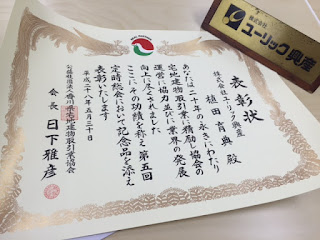 表彰状
株式会社ユーリック興産
植田育典 殿
あなたは二十年の永きにわたり
宅地建物取引業に精励し協会の
運営に協力並びに業界の発展
向上に尽くされました
ここにその功績を称え第五回
定時総会において記念品を添え
表彰いたします
平成二十八年五月三十日
公益社団法人香川県宅地建物取引業協会
会長 日下雅彦
株式会社
ユーリック興産